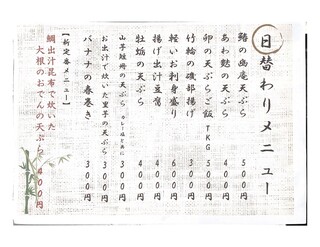 日替わりメニュー
鰆の幽庵天ぷら 500円
あわ麩の天ぷら 400円
卵の天ぷらご飯 TKG 500円
竹輪の磯部揚げ 300円
軽いお刺身盛り 600円
揚げ出汁豆腐 400円
牡蛎の天ぷら 400円
山芋短冊の天ぷら 300円
お出汁で炊いた里芋の天ぷら 300円
バナナの春巻き 300円
【新定番メニュー】
鯛出汁昆布で炊いた
大根のおでんの天ぷら 400円